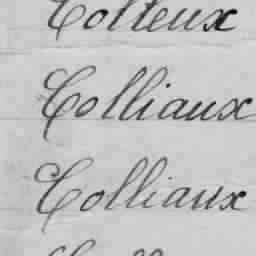 Colteux
Colliaux
Colliaux